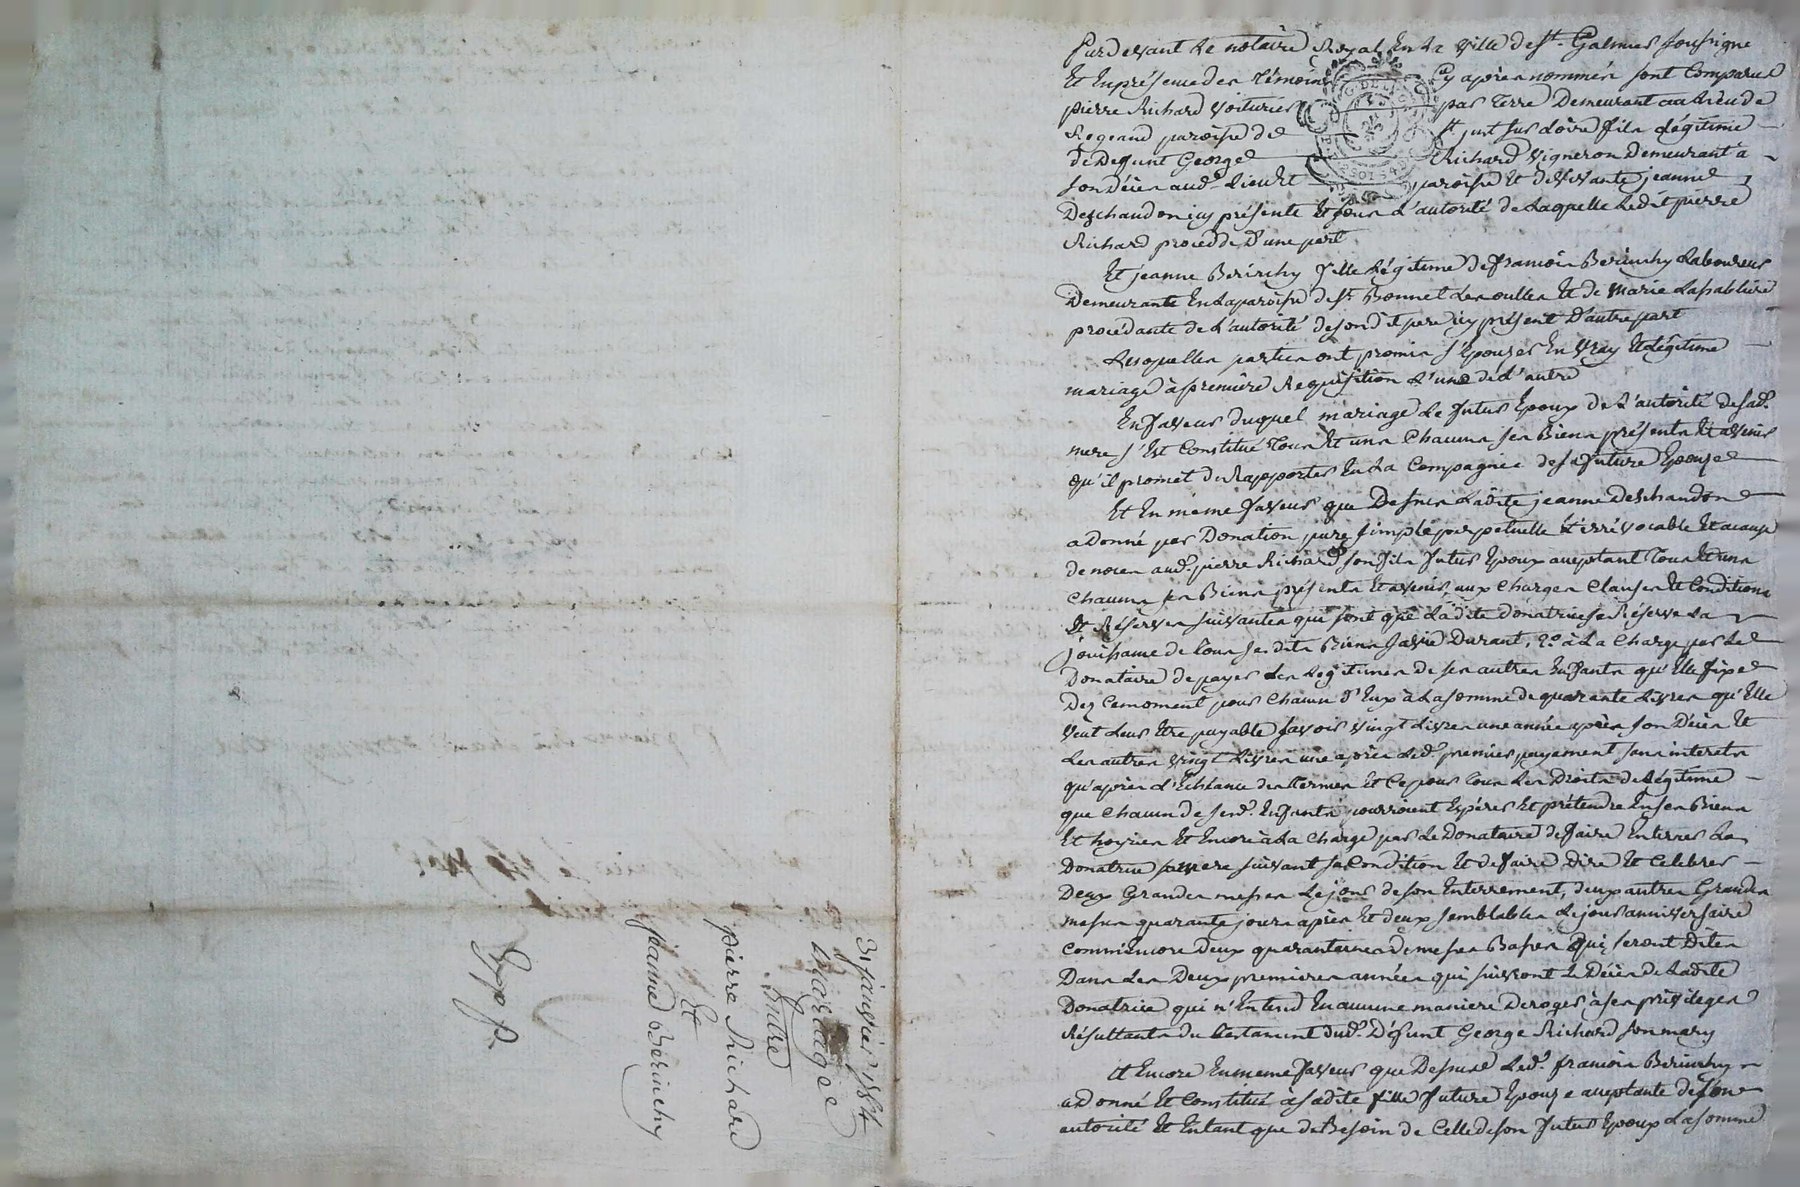 Pardevant Le notaire Royal En La ville de St. Galmier soussigné
Et En présence des témoins cy après nommés sont Comparus
pierre Richard voiturier par Terre Demeurant au Lieu de
paroisse de St. just sur Loire fils Légitime
de Defunt George Richard vigneron Demeurant a
son décès aud. Lieu Et paroisse Et de vivante jeanne
Deschaudon icy présente Et sous L'autorité de Laquelle Ledit pierre
Richard procedde D'une part
Et jeanne Berinchy fille Légitime de françois Berinchy Laboureur
Demeurante En La paroisse de St. Bonnet Les oulles Et de Marie Lasablière
procédante de L'autorité de sondit pere icy présent D'autre part
Lesquelles parties ont promis s'Epouser En vray Et Légitime
mariage à première Requisition L'une de L'autre
En faveur duquel mariage Le futur Epoux de L'autorité de sad.
mere s'Est Constitué Tous Et uns Chacuns ses Biens présents Et avenir
qu'il promet de Rapporter En La Compagnie de sa future Epouse
Et En même faveur que Dessus Ladite jeanne Deschaudon
a Donné par Donation pure simple perpetuelle Et irrévocable Et a cause
de noces aud. pierre Richard son fils futur Epoux acceptant Tous Et uns
Chacuns ses Biens présents Et avenir, aux Charges Clauses Et Conditions
Et Réserves suivantes qui sont que Ladite donatrice se Réserve La
jouissance de Tous sesdits Biens sa vie Durant, 2.o à La Charge par Le
Donataire de payer Les Légitimes de ses autres Enfants qu'Elle fixe
Dez Ce moment pour Chacun d'Eux à La somme de quarante Livres qu'Elle
veut Leur Etre payable savoir vingt Livres une année après son Décès Et
Les autres vingt Livres une après Led. premier payement sans interets
qu'après L'Echéance des termes Et Ce pour tous Les Droits de Légitime
que Chacun de sesd. Enfants pourroient Espérer Et prétendre En ses Biens
Et hoyries Et Encore à La Charge par Le Donataire de faire Enterrer La
Donatrice sa mere suivant sa Condition Et de faire Dire Et Celebrer
Deux Grandes messes Le jour de son Enterrement, deux autres Grandes
messes quarante jours après Et deux semblables Le jour anniversaire
Comm'Encore Deux quarantaines de messes Basses qui seront Dites
Dans Les Deux premieres années qui suivront Le Décès de Ladite
Donatrice qui n'Entend En aucune maniere Deroger à ses privileges
Résultants du testament dud. Défunt George Richard son mary
Et Encore En meme faveur que Dessus Led. françois Berinchy
a Donné Et Constitué à sadite fille future Epouse acceptante de son
autorité Et En tant que de Besoin de Celle de son futur Epoux La somme
31 janvier 1784
Mariage
Entre
pierre Richard
Et
jeanne Berinchy